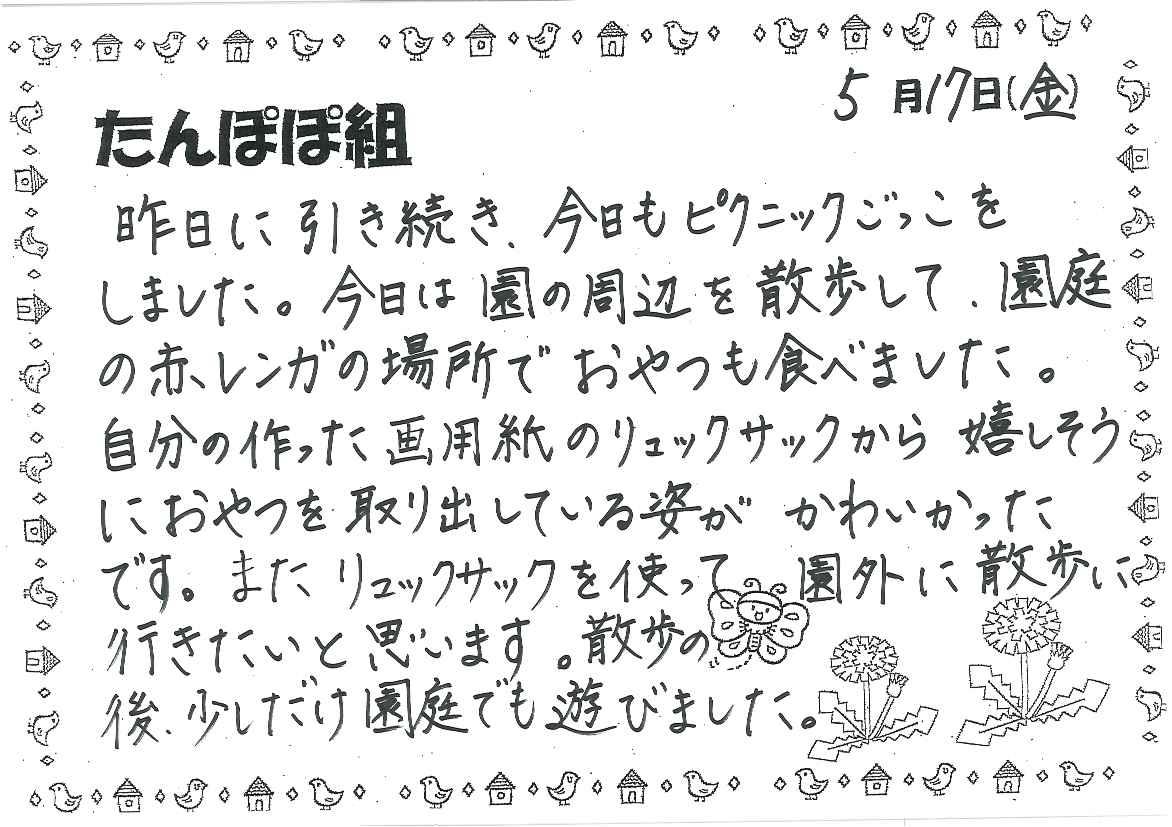 5月17日(金)
たんぽぽ組
昨日に引き続き、今日もピクニックごっこを
しました。今日は園の周辺を散歩して、園庭
の赤レンガの場所でおやつも食べました。
自分の作った画用紙のリュックサックから嬉しそう
におやつを取り出している姿がかわいかった
です。またリュックサックを使って園外に散歩に
行きたいと思います。散歩の
後、少しだけ園庭でも遊びました。